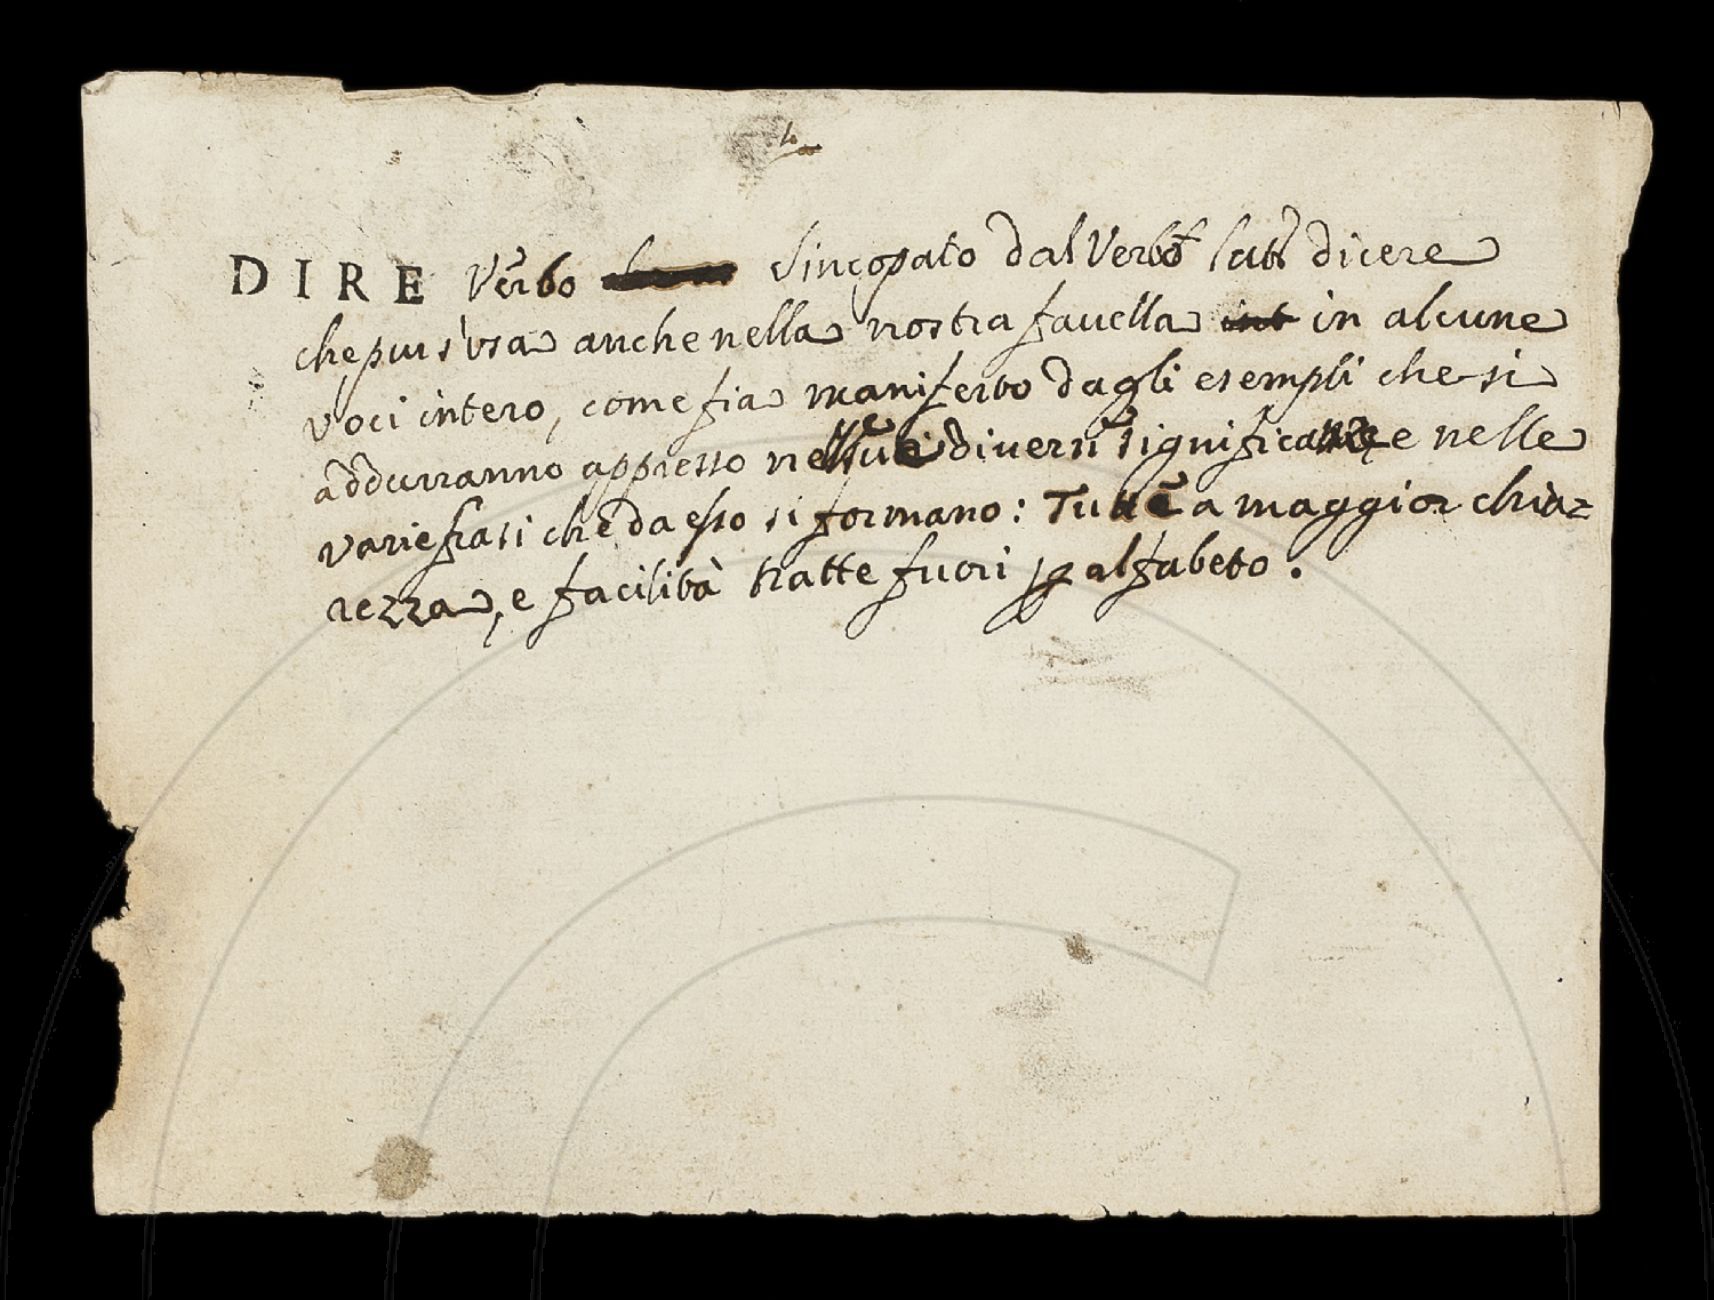 DIRE Verbo Sincopato dal Verbo lat. dicere
che pur s'usa anche nella nostra favella in alcune
voci intero, come fia manifesto dagli esempli che si
addurranno appresso diversi e nelle
varie frasi che da esso si formano: Tutte a maggior chia-
rezza, e facilità tratte fuori ꝑ alfabeto.